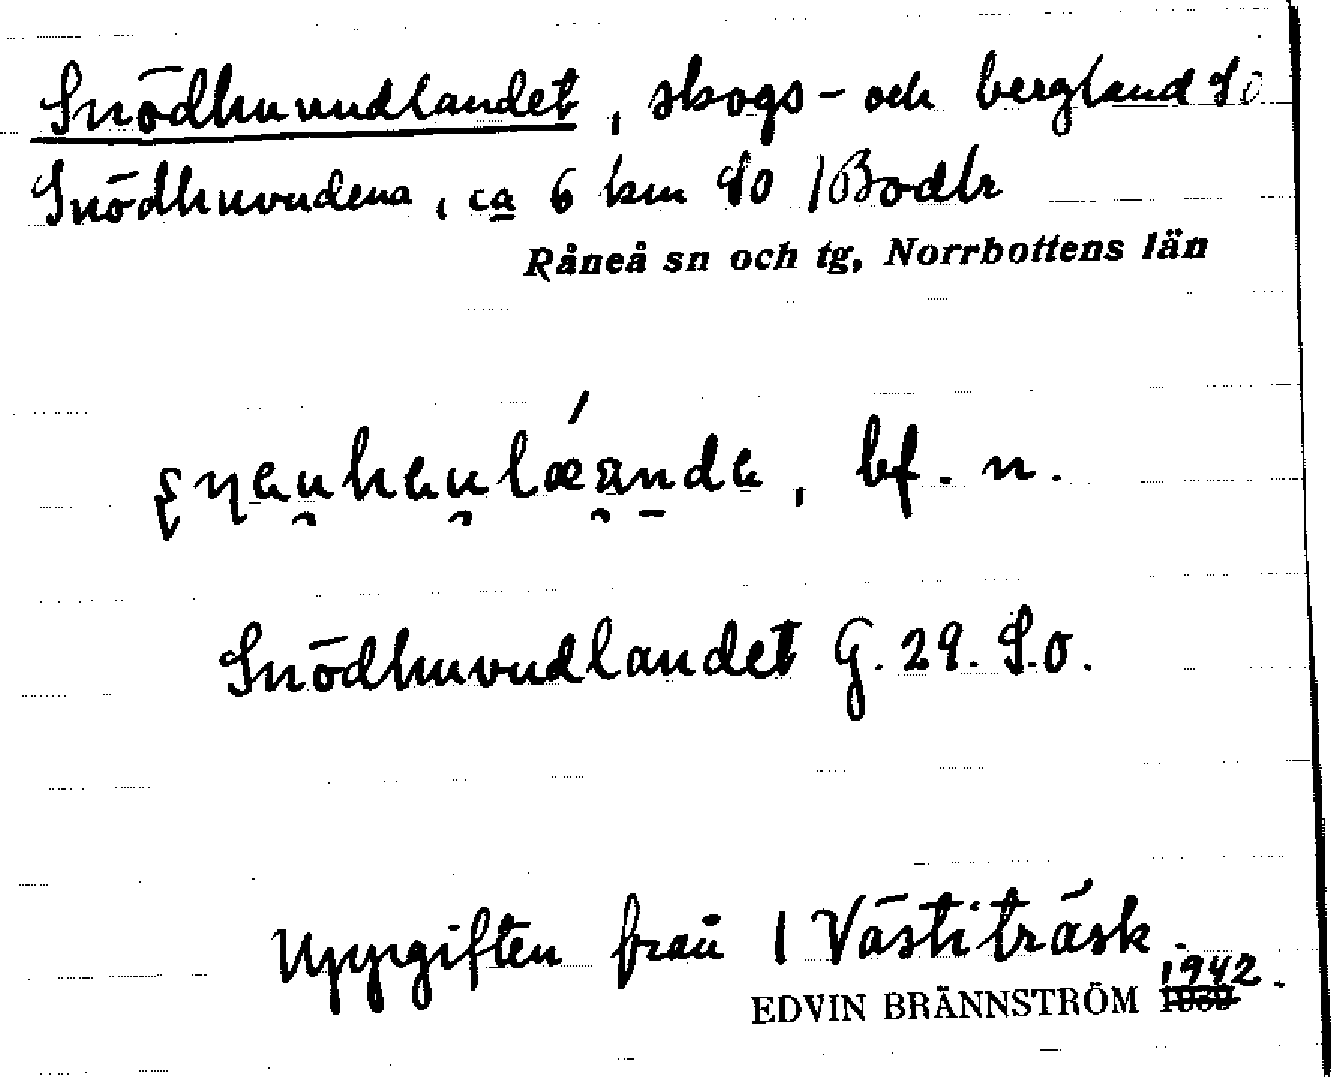 Snödhuvudlandet, skogs- och bergland SO
Snödhuvudena, ca 6 km SO /Bodtr
Råneå sn och tg, Norrbottens län
bf. n.
Snödhuvudlandet G. 29. S.o.
Uppgiften från / Västiträsk.
1942.
EDVIN BRÄNNSTRÖM 1939